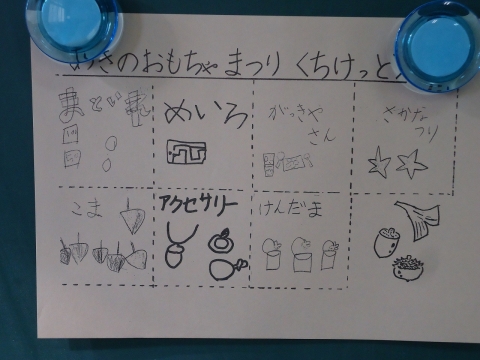 あきのおもちゃまつりくちけっと
めいろ
がっきや
さん
さかな
つり
こま
アクセサリー
けんだま